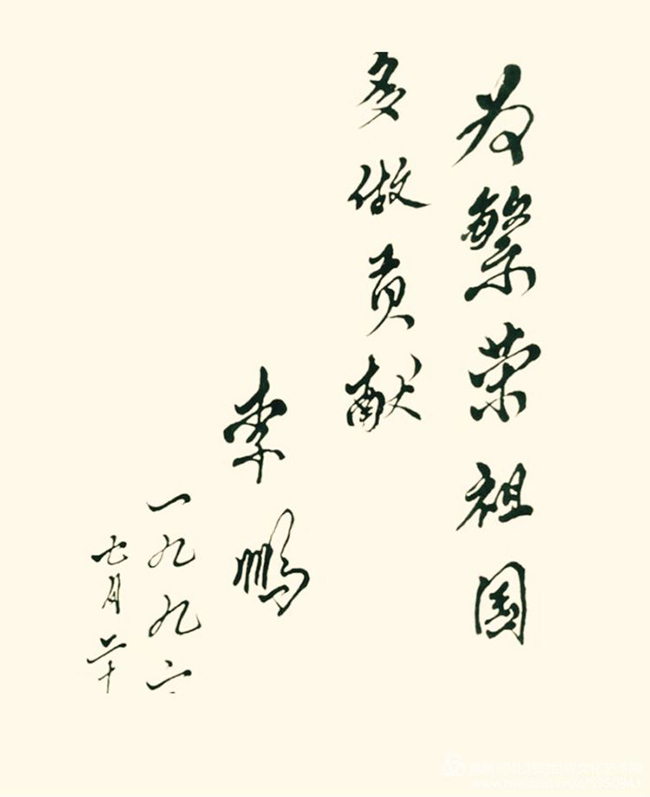 为繁荣祖国
多做贡献
李鹏
一九九六
七月二十